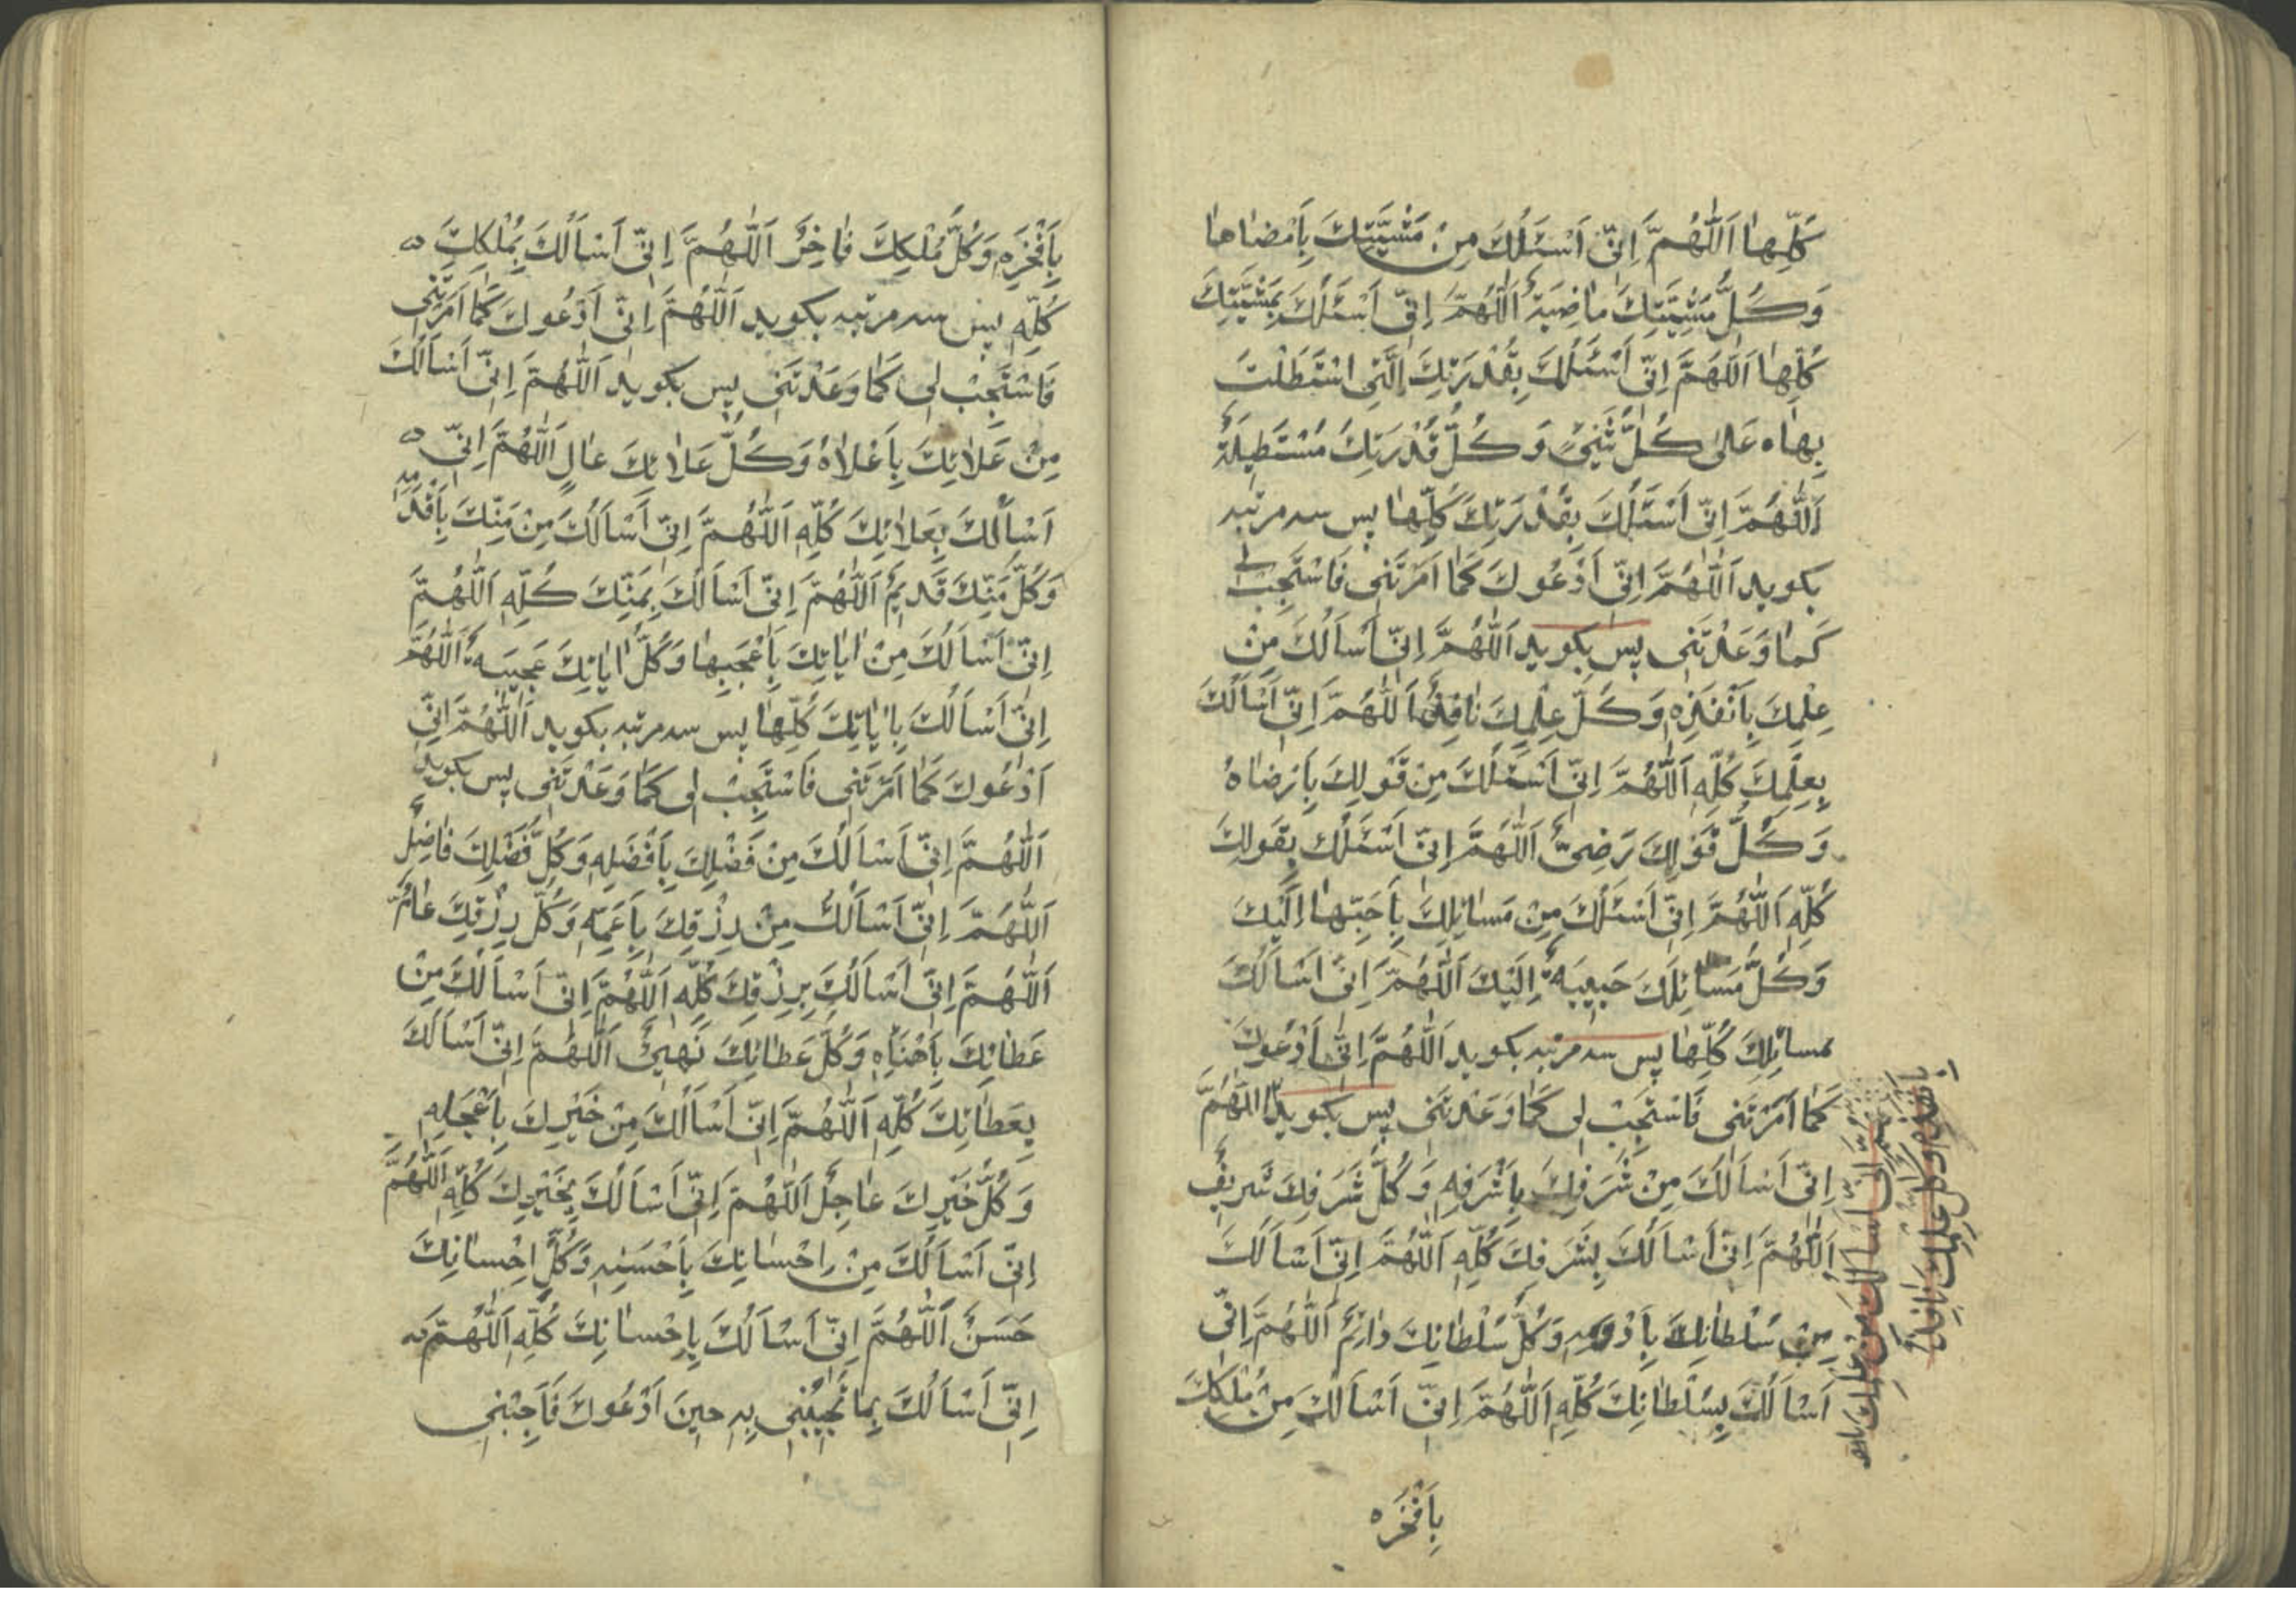 كُلِّهٰا اَللّٰهُمَّ اِنّىِ اَسْئَلُكَ مِنْ مَشْيَّتِكَ بِاَمْضٰاهٰا
وَكُلُّ مَشِيَّتِكَ مٰاضِيَةٌ اَللّٰهُمَّ اِنّىِ اَسْئَلُكَ بِمَشْيَّتِكَ
كُلِّهٰا اَللّٰهُمَّ اِنّىِ اَسْئَلُكَ بِقُدْرَتِكَ الَّتىِ اسْتَطَلْتَ
بِهٰاه عَلىٰ كُلِّ شَيْئٍ وَكُلُّ قُدْرَتِكَ مُسْتَطيلَةٌ
اَللّٰهُمَّ اِنّىِ اَسْئَلُكَ بِقُدْرَتِكَ كُلِّهٰا پس سه مرتبه
بكويد اَللّٰهُمَّ اِنّىِ اَدْعُوكَ كَمٰا اَمَرْتَنىِ فَاسْتَجِبْ لى
كَمٰا وَعَدْتَنىِ پس بكويد اَللّٰهُمَّ اِنّىِ اَسْاَلُكَ مِنْ
عِلْمِكَ بِاَنْفَذِهِ وَكُلُّ عِلْمِكَ نٰافِذٌ اَللّٰهُمَّ اِنّىِ اَسْاَلُكَ
بِعِلْمِكَ كُلِّهِ اَللّٰهُمَّ اِنّىِ اَسْئَلُكَ مِنْ قَوْلِكَ بِاَرْضٰاهُ
وَكُلُّ قَوْلِكَ رَضِىٌّ اَللّٰهُمَّ اِنّىِ اَسْئَلُكَ بِقَولِكَ
كُلِّهِ اَللّٰهُمَّ اِنّىِ اَسْئَلُكَ مِنْ مَسٰائِلِكَ بِاَحَبِّهٰا اِلَيْكَ
وَكُلُّ مَسٰائِلِكَ حَبيبَةٌ اِلَيْكَ اَللّٰهُمَّ اِنّىِ اَسْاَلُكَ
بمسائلِكَ كُلِّهٰا پس سه مرتبه بكويد اَللّٰهُمَّ اِنّىِ اَدْعُوكَ
كَمٰا اَمَرْتَنىِ فَاسْتَجِبْ لى كَمٰا وَعَدْتَنىِ پس بكويد اللّٰهُمَّ
اِنّىِ اَسْاَلُكَ مِنْ شَرَفِكَ بِاَشْرَفِهِ وَكُلُّ شَرَفِكَ شَريفٌ
اَللّٰهُمَّ اِنّىِ اَسْاَلُكَ بِشَرَفِكَ كُلِّهِ اَللّٰهُمَّ اِنّىِ اَسْاَلُكَ
مِنْ سُلْطٰانِكَ بِاَدْوَمِهِ وَكُلُّ سُلْطٰانِكَ دٰائِمٌ اَللّٰهُمَّ اِنّىِ
اَسْاَلُكَ بِسُلْطٰانِكَ كُلِّهِ اَللّٰهُمَّ اِنّىِ اَسْاَلُكَ مِنْ مُلْكِكَ
بِاَفْخَرِه
اِنّى اَسْاَلُكَ مِنْ عِلْمِكَ
بِاَنْفَذِهِ وَكُلُّ عِلْمِكَ نٰافِذٌ
بِاَفْخَرِهِ وَكُلُّ مُلْكِكَ فٰاخِرٌ اَللّٰهُمَّ اِنّىِ اَسْاَلُكَ بِمُلْكِكَ
كُلِّهِ پس سه مرتبه بكويد اَللّٰهُمَّ اِنّىِ اَدْعُوكَ كَمٰا اَمَرْتَنىِ
فَاسْتَجِبْ لى كَمٰا وَعَدْتَنىِ پس بكويد اَللّٰهُمَّ اِنّىِ اَسْاَلُكَ
مِنْ عَلاٰئِكَ بِاَعْلاٰهُ وَكُلُّ عَلاٰئِكَ عٰالٍ اَللّٰهُمَّ اِنّىِ
اَسْاَلُكَ بِعَلاٰئِكَ كُلِّهِ اَللّٰهُمَّ اِنّىِ اَسْاَلُكَ مِنْ مَنِّكَ بِاَقْدَمِهِ
وَكُلُّ مَنِّكَ قَديمٌ اَللّٰهُمَّ اِنّىِ اَسْاَلُكَ بِمَنِّكَ كُلِّهِ اَللّٰهُمَّ
اِنّىِ اَسْاَلُكَ مِنْ اٰيٰاتِكَ بِاَعْجَبِهٰا وَكُلُّ اٰيٰاتِكَ عَجيبَةٌ اَللّٰهُمَّ
اِنّىِ اَسْاَلُكَ بِاٰيٰاتِكَ كُلِّهٰا پس سه مرتبه بكويد اَللّٰهُمَّ اِنّىِ
اَدْعُوكَ كَمٰا اَمَرْتَنىِ فَاسْتَجِبْ لى كَمٰا وَعَدْتَنىِ پس بكويد
اَللّٰهُمَّ اِنّىِ اَسْاَلُكَ مِنْ فَضْلِكَ بِاَفْضَلِهِ وَكُلُّ فَضْلِكَ فٰاضِلٌ
اَللّٰهُمَّ اِنّىِ اَسْاَلُكَ مِنْ رِزْقِكَ بِاَعَمِّهِ وَكُلُّ رِزْقِكَ عٰامٌّ
اَللّٰهُمَّ اِنّىِ اَسْاَلُكَ بِرِزْقِكَ كُلِّهِ اَللّٰهُمَّ اِنّىِ اَسْاَلُكَ مِنْ
عَطٰائِكَ بِاَهْنَاِهِ وَكُلُّ عَطٰائِكَ نَهيئٌ اَللّٰهُمَّ اِنّىِ اَسْاَلُكَ
بِعَطٰائِكَ كُلِّهِ اَللّٰهُمَّ اِنّىِ اَسْاَلُكَ مِنْ خَيْرِكَ بِاَعْجَلِهِ
وَكُلُّ خَيْرِكَ عٰاجِلٌ اَللّٰهُمَّ اِنّىِ اَسْاَلُكَ بِخَيْرِكَ كُلِّهِ اَللّٰهُمَّ
اِنّىِ اَسْاَلُكَ مِنْ اِحْسٰانِكَ بِاَحْسَنِهِ وَكُلُّ اِحْسٰانِكَ
حَسَنٌ اَللّٰهُمَّ اِنّىِ اَسْاَلُكَ بِاِحْسٰانِكَ كُلِّهِ اَللّٰهُمَّ
اِنّىِ اَسْاَلُكَ بِمٰا تُجيبُنىِ بِهِ حينَ اَدْعُوكَ فَاَجِبْنىِ